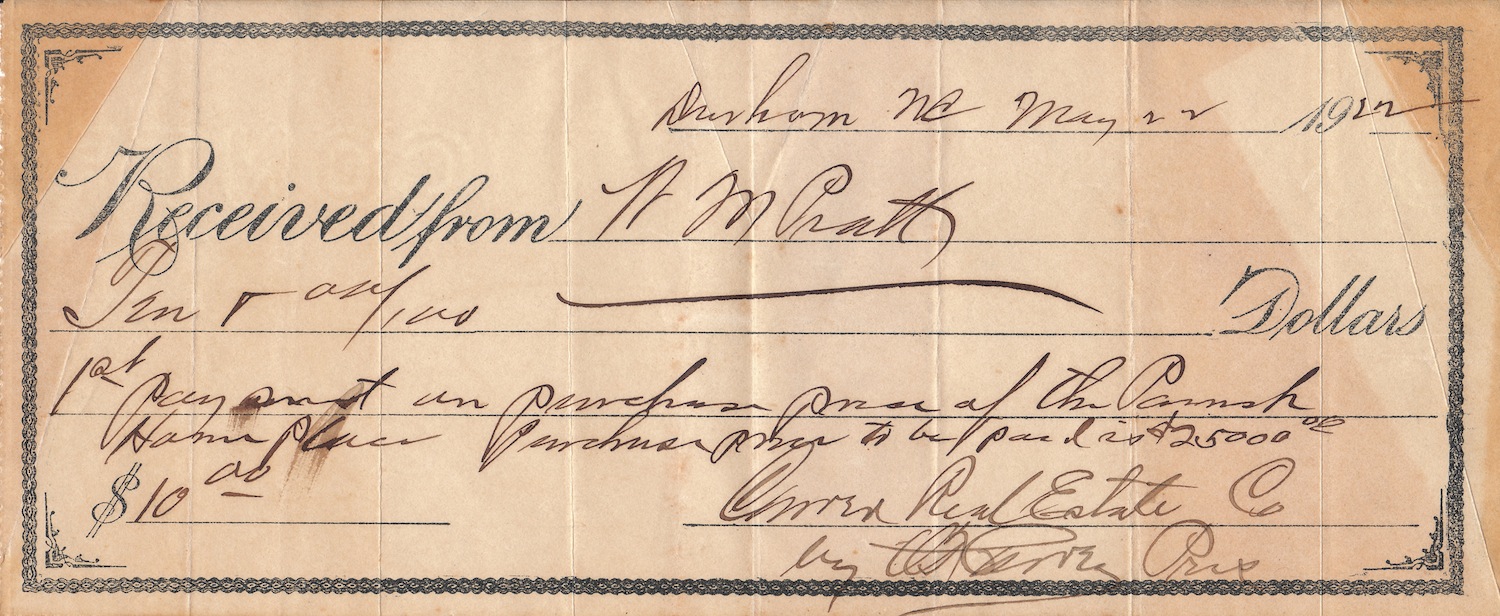 Durham NC May 22 1922
Received from W M Pratt
Ten & 00/100 Dollars
1st payment on purchase price of the Parrish
Home place Purchase price to be paid is $25000 00
$10 00 Real Estate Co
by Pres